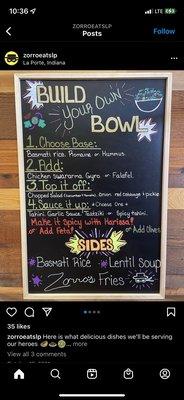 10:36
ZORROEATSLP
Posts
Follow
zorroeatslp
La Porte, Indiana
BUILD
Your Own
BOWL
1. Choose Base:
Basmati rice, Romaine or Hummus
2. Add:
Chicken Swararma, Gyro or Falafel
3. Top it off:
Chopped Salad Onion red cabbage & pickle
4. Sauce it up: * Choose One *
Tahini, Garlic Sauce, Tzatziki or Spicy tahini.
Make it Spicy with Harissa!
or Add Feta! or Add Olives
SIDES
Basmati Rice Lentil Soup
Zorro's Fries
35 likes
zorroeatslp Here is what delicious dishes we'll be serving
our heroes ... more
View all 3 comments